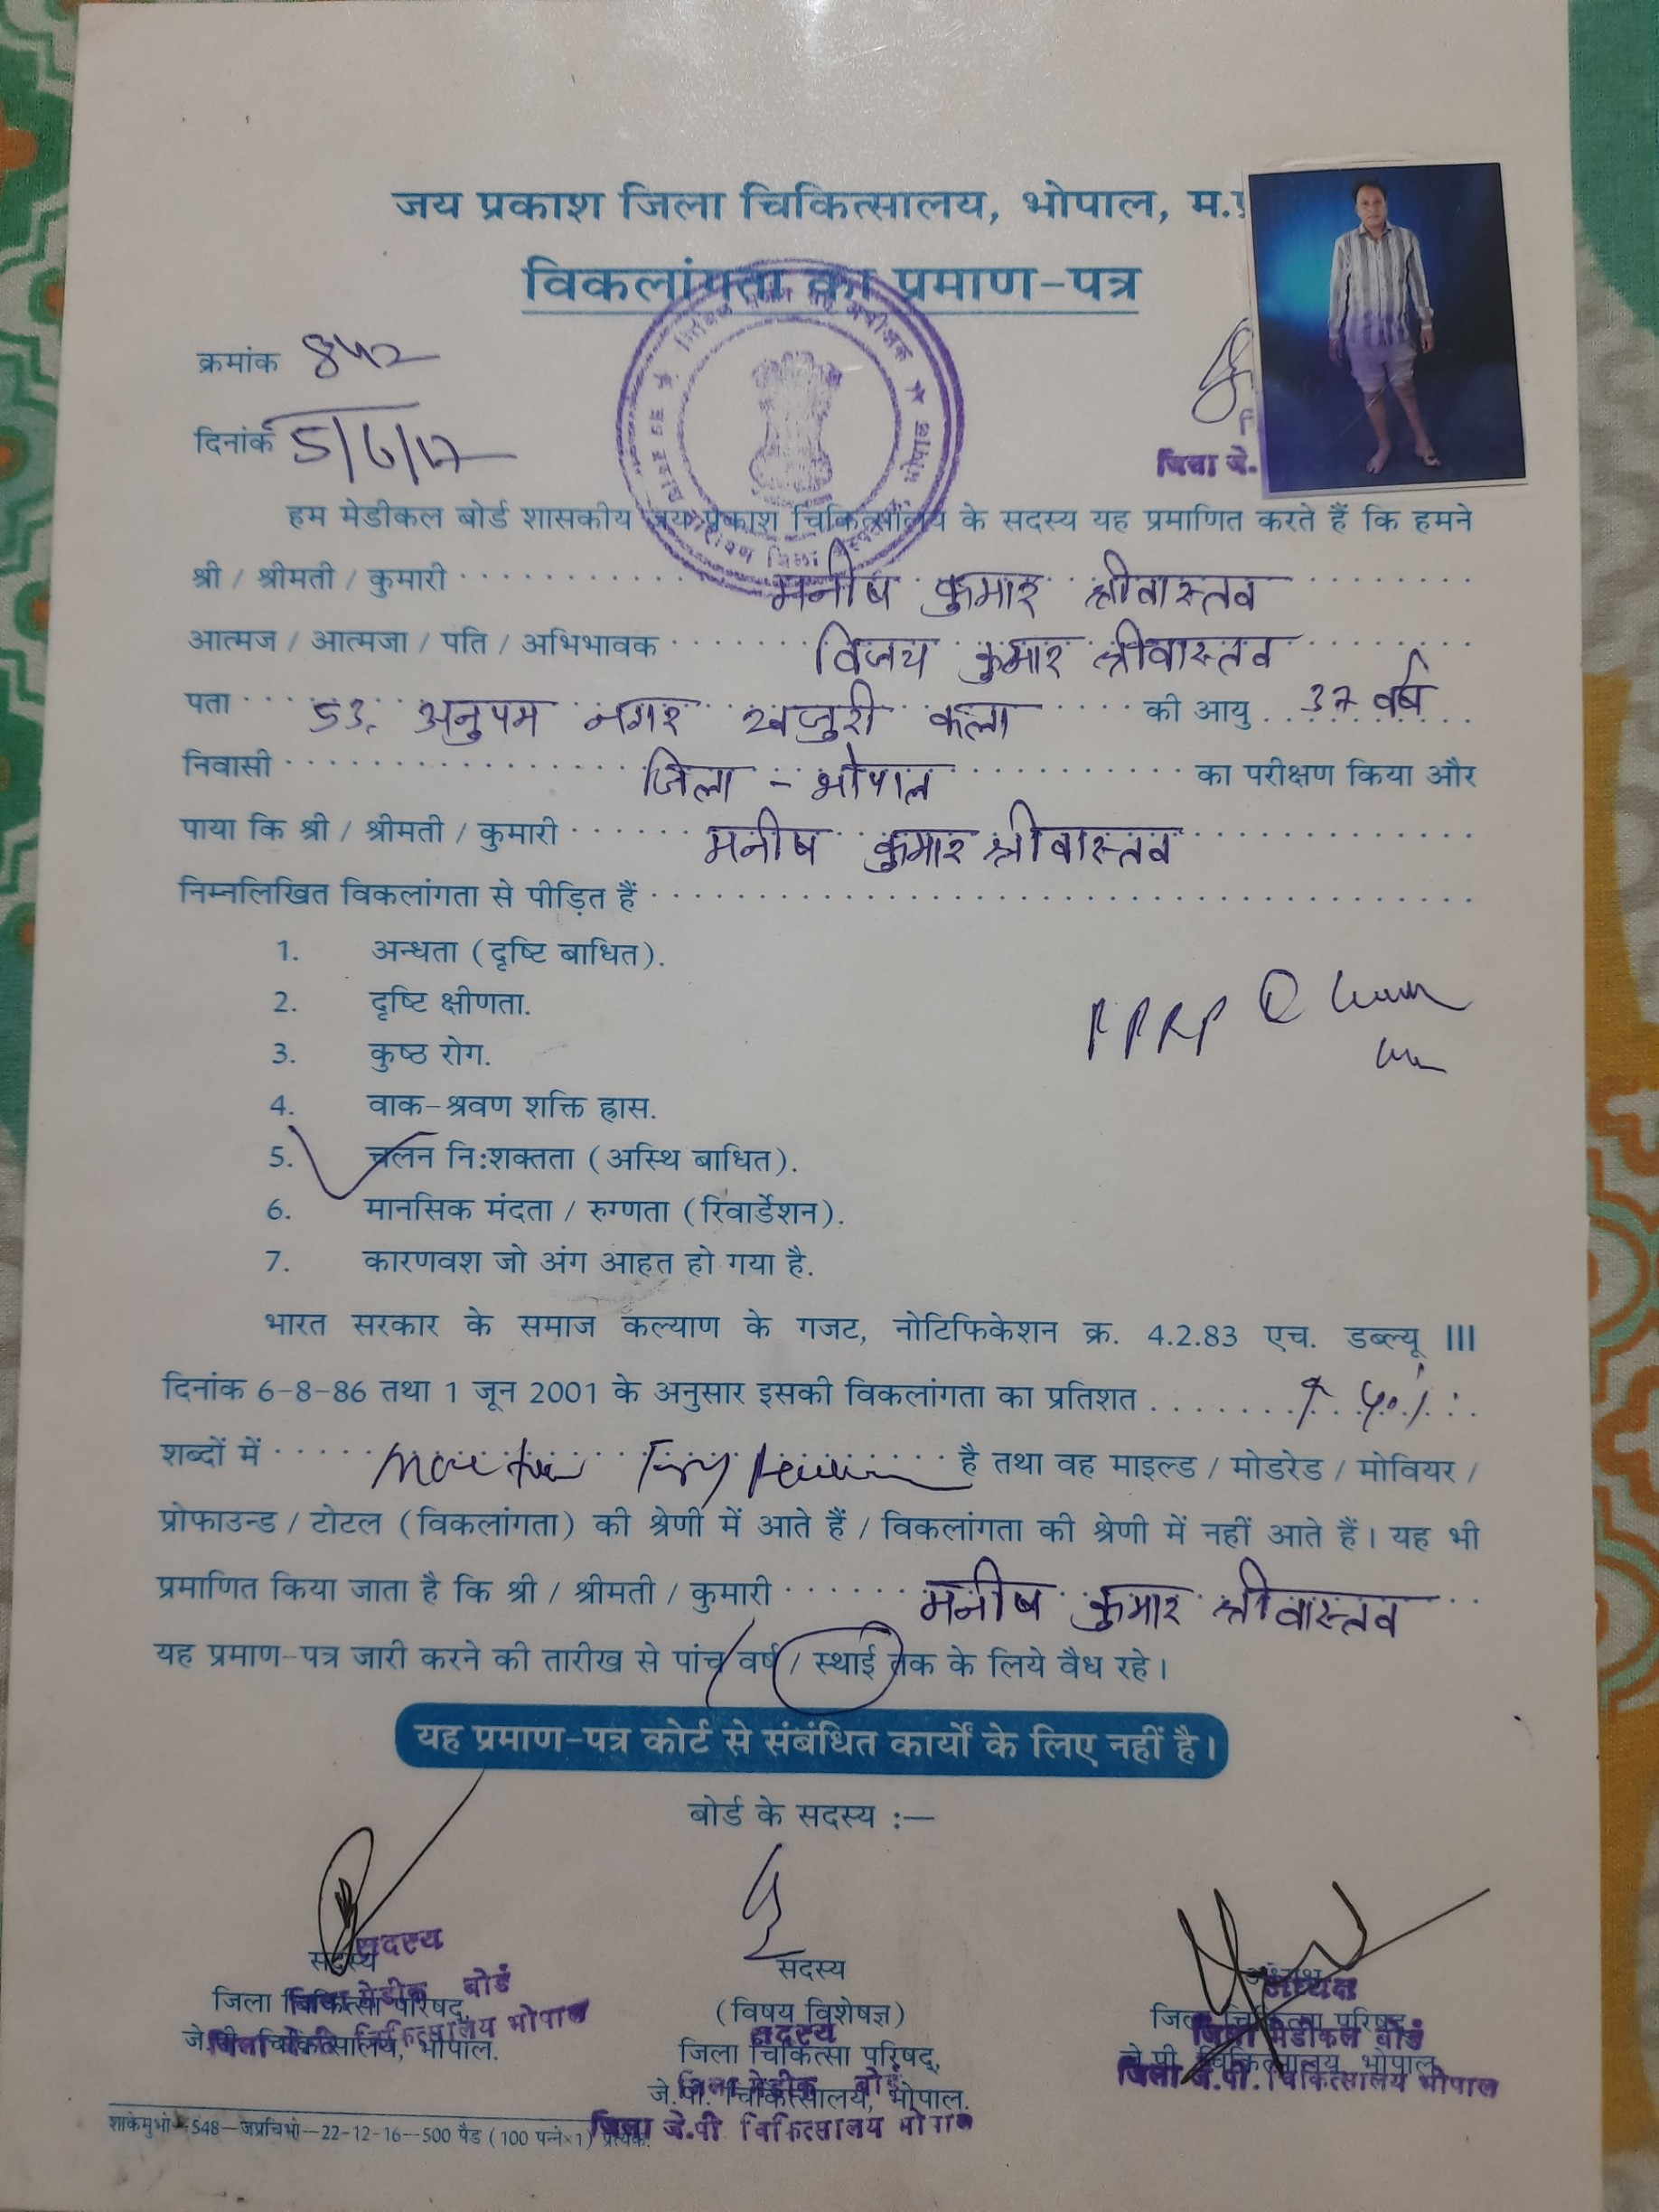 जय प्रकाश जिला चिकित्सालय, भोपाल, म.प्र
विकलांगता का प्रमाण-पत्र
क्रमांक 842
दिनांक 5/6/17
जिला जे.
हम मेडीकल बोर्ड शासकीय जय प्रकाश चिकित्सालय के सदस्य यह प्रमाणित करते हैं कि हमने
श्री / श्रीमती / कुमारी मनीष कुमार श्रीवास्तव
आत्मज / आत्मजा / पति / अभिभावक विजय कुमार श्रीवास्तव
पता 53, अनुपम नगर खजुरी कला की आयु 37 वर्ष
निवासी जिला - भोपाल का परीक्षण किया और
पाया कि श्री / श्रीमती / कुमारी मनीष कुमार श्रीवास्तव
निम्नलिखित विकलांगता से पीड़ित हैं
1. अन्धता (दृष्टि बाधित).
2. दृष्टि क्षीणता.
3. कुष्ठ रोग.
4. वाक-श्रवण शक्ति ह्रास.
5. चलन नि:शक्तता (अस्थि बाधित).
6. मानसिक मंदता / रुग्णता (रिवार्डेशन).
7. कारणवश जो अंग आहत हो गया है.
PPRP
भारत सरकार के समाज कल्याण के गजट, नोटिफिकेशन क्र. 4.2.83 एच. डब्ल्यू III
दिनांक 6-8-86 तथा 1 जून 2001 के अनुसार इसकी विकलांगता का प्रतिशत 40%
शब्दों में है तथा वह माइल्ड / मोडरेड / मोवियर /
प्रोफाउन्ड / टोटल (विकलांगता) की श्रेणी में आते हैं / विकलांगता की श्रेणी में नहीं आते हैं। यह भी
प्रमाणित किया जाता है कि श्री / श्रीमती / कुमारी मनीष कुमार श्रीवास्तव
यह प्रमाण-पत्र जारी करने की तारीख से पांच वर्ष / स्थाई तक के लिये वैध रहे।
यह प्रमाण-पत्र कोर्ट से संबंधित कार्यों के लिए नहीं है।
बोर्ड के सदस्य :—
सदस्य
सदस्य
जिला चिकित्सा परिषद्,
जे.पी. चिकित्सालय, भोपाल.
सदस्य
(विषय विशेषज्ञ)
सदस्य
जिला चिकित्सा परिषद्,
जे.पी. चिकित्सालय, भोपाल.
जिला जे.पी चिकित्सालय भोपाल
अध्यक्ष
अध्यक्ष
जिला चिकित्सा परिषद्,
जिला मेडीकल बोर्ड
जे.पी. चिकित्सालय, भोपाल.
जिला जे.पी. चिकित्सालय भोपाल
शाकेमुभो—548—जप्रचिभो—22-12-16—500 पैड (100 पन्ने×1) प्रत्येक.